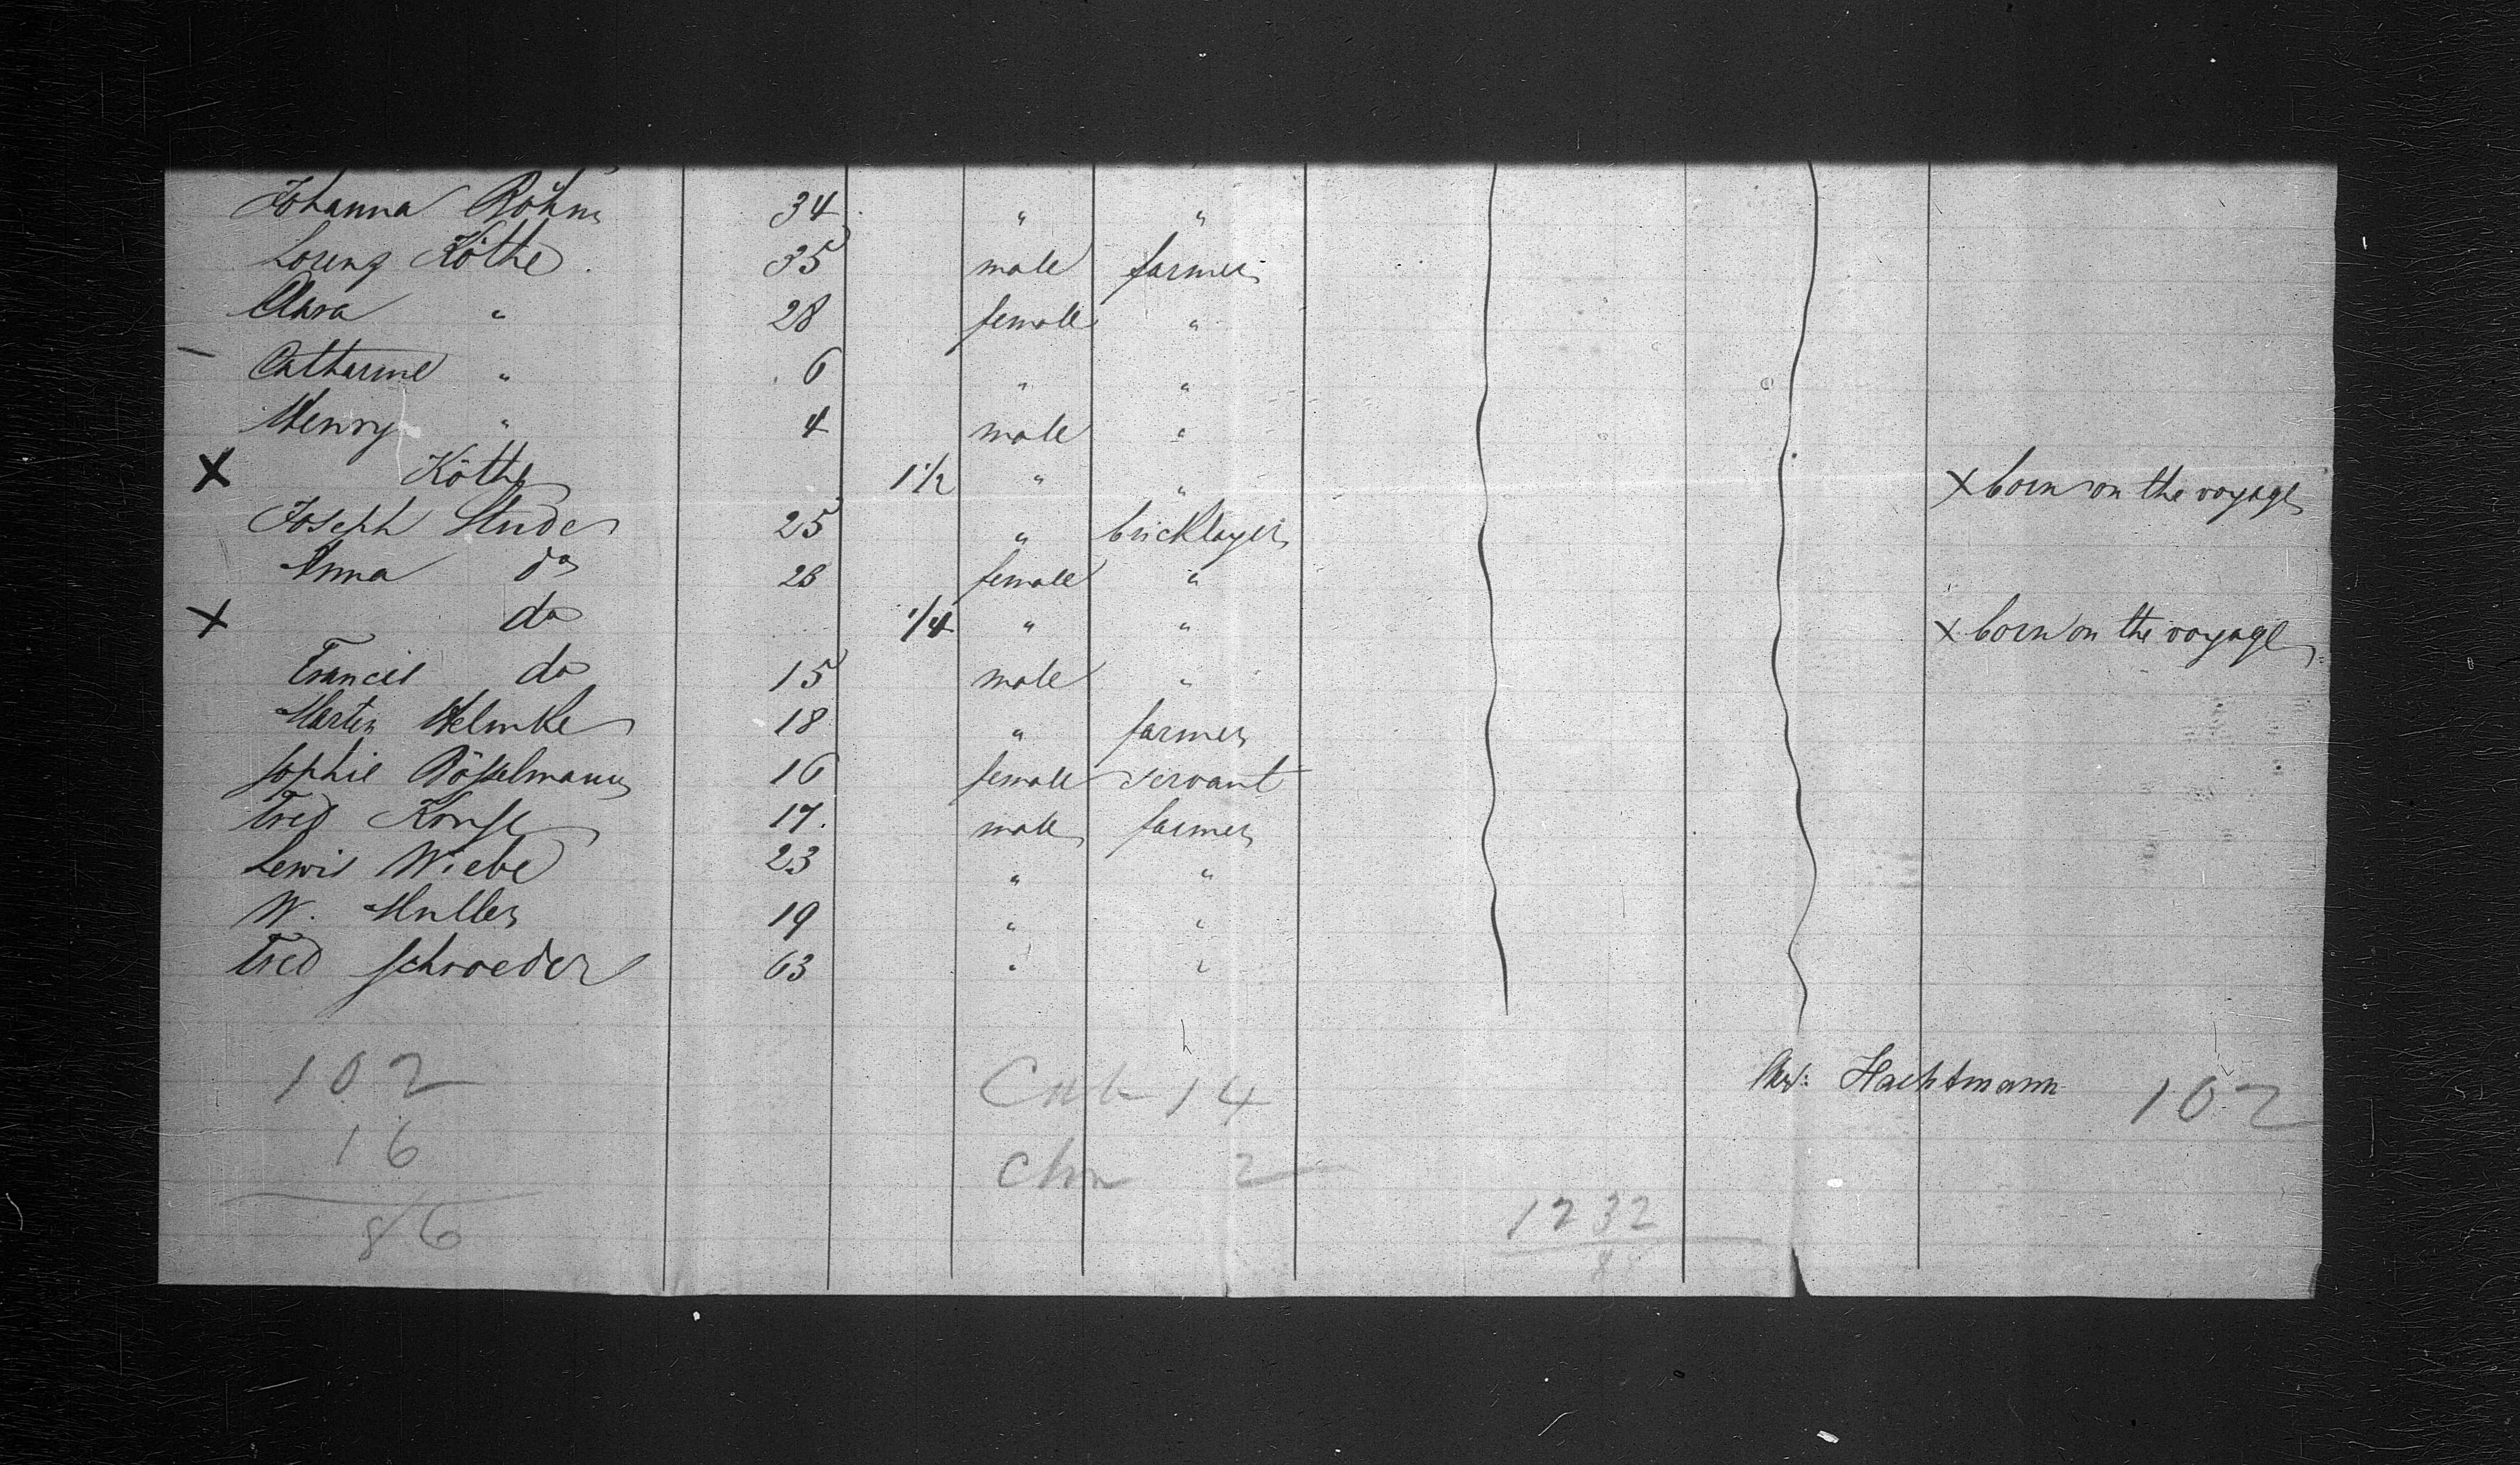 Johanna Böhm 34 " "
Lorenz Köthe 35 male farmer
Clara " 28 female "
Catharine " 6 " "
Henry " 4 male "
X Köthe 1 1/2 " " X born on the voyage
Joseph Stude 25 " bricklayer
Anna do 23 female "
X do 1/4 " " X born on the voyage
Francis do 15 male "
Marten Helmke 18 " farmer
Sophie Bösselmann 16 female servant
Fred 17 male farmer
Lewis Wiebe 23 " "
W. Muller 19 " "
Fred Schroeder 63 " "
Hachtmann
102 14 102
16 Chn 2
86 1232